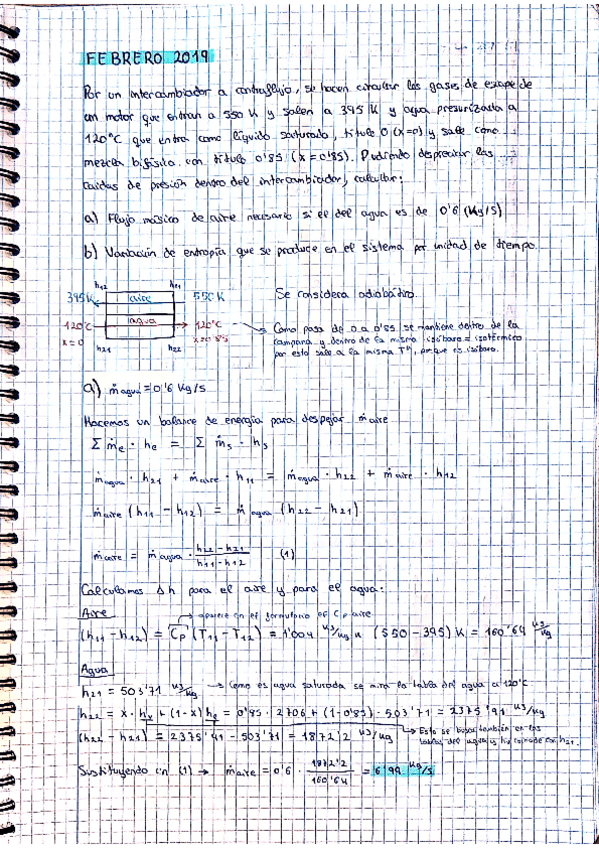 FEBRERO 2019
Por un intercambiador a contraflujo, se hacen circular los gases de escape de
un motor que entran a 550 K y salen a 395 K y agua presurizada a
120°C que entra como líquido saturado, título 0 (x=0) y sale como
mezcla bifásica con título 0'85 (x=0'85). Pudiendo despreciar las
caídas de presión dentro del intercambiador, calcular:
a) Flujo másico de aire necesario si el del agua es de 0'6 (Kg/s)
b) Variación de entropía que se produce en el sistema por unidad de tiempo.
h12 h11
395K aire 550K Se considera adiabático.
120°C agua 120°C Como pasa de 0 a 0'85 se mantiene dentro de la
x=0 x=0'85 campana y dentro de la misma isóbara = isotérmico
h21 h22 por esto sale a la misma Tª, porque es isóbaro.
a) ṁagua = 0'6 Kg/s
Hacemos un balance de energía para despejar ṁaire
Σ ṁe · he = Σ ṁs · hs
ṁagua · h21 + ṁaire · h11 = ṁagua · h22 + ṁaire · h12
ṁaire (h11 - h12) = ṁagua (h22 - h21)
ṁaire = ṁagua · h22 - h21 / h11 - h12 (1)
Calculamos Δh para el aire y para el agua:
Aire → aparece en el formulario el Cp aire
(h11 - h12) = Cp (T11 - T12) = 1'004 KJ/Kg K (550 - 395) K = 160'64 KJ/Kg
Agua
h21 = 503'71 KJ/Kg → Como es agua saturada se mira la tabla del agua a 120°C
h22 = x · hx + (1-x) he = 0'85 · 2706 + (1-0'85) · 503'71 = 2375'91 KJ/Kg
(h22 - h21) = 2375'91 - 503'71 = 1872'2 KJ/Kg → Esto se busca también en las
tablas del agua y he coincide con h21.
Sustituyendo en (1) → ṁaire = 0'6 · 1872'2 / 160'64 = 6'99 Kg/s